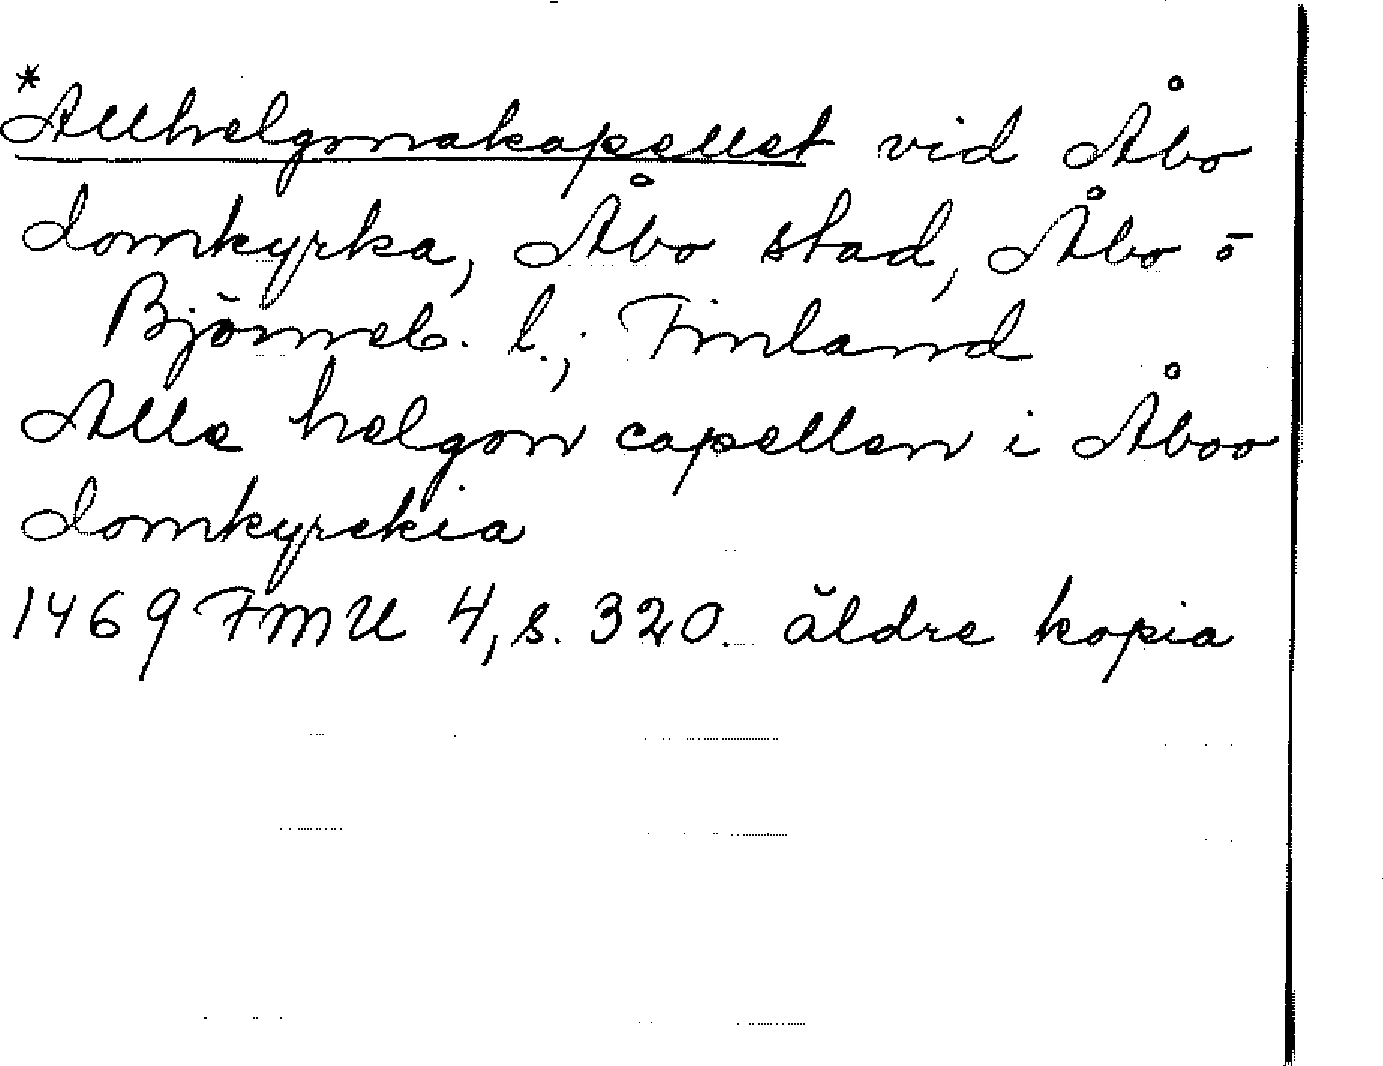 *Allhelgonakapellet vid Åbo
domkyrka, Åbo stad, Åbo o
Björneb. l., Finland
Alle helgon capellen i Åboo
domkyrckia
1469 FMU 4, s. 320. äldre kopia